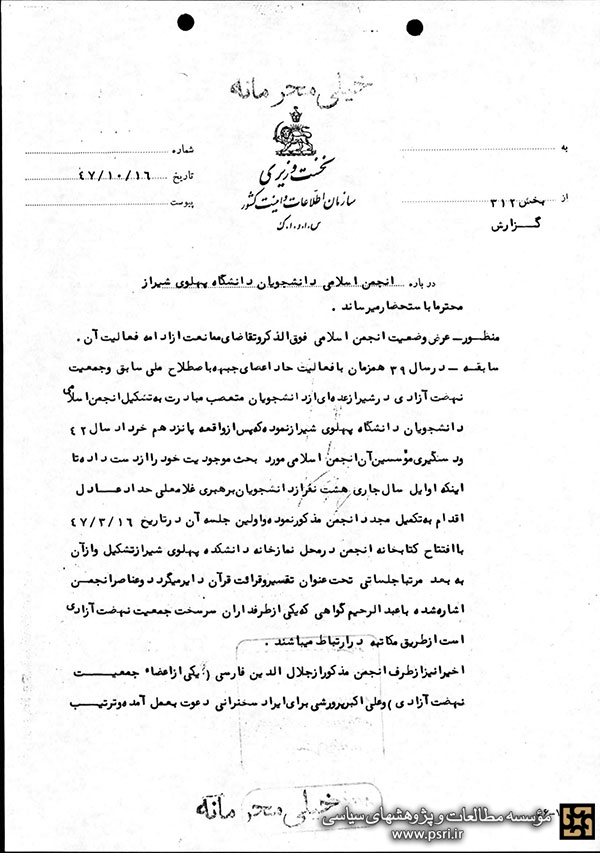 خیلی محرمانه
نخست وزیری
سازمان اطلاعات و امنیت کشور
س.ا.و.ا.ک
به
از بخش ۳۱۲
گزارش
شماره
تاریخ ۴۷/۱۰/۱۶
پیوست
درباره انجمن اسلامی دانشجویان دانشگاه پهلوی شیراز
محترما باستحضار میرساند .
منظور ـ عرض وضعیت انجمن اسلامی فوق الذکر و تقاضای ممانعت از ادامه فعالیت آن .
سابقه ـ در سال ۳۹ همزمان با فعالیت حاد اعضای جبهه باصطلاح ملی سابق و جمعیت
نهضت آزادی در شیراز عده ای از دانشجویان متعصب مبادرت به تشکیل انجمن اسلامی
دانشجویان دانشگاه پهلوی شیراز نموده که پس از واقعه پانزدهم خرداد سال ۴۲
و دستگیری مؤسسین آن انجمن اسلامی مورد بحث موجودیت خود را از دست داده تا
اینکه اوایل سال جاری هشت نفر از دانشجویان برهبری غلامعلی حداد عادل
اقدام به تکمیل مجدد انجمن مذکور نموده و اولین جلسه آن در تاریخ ۴۷/۳/۱۶
با افتتاح کتابخانه انجمن در محل نمازخانه دانشکده پهلوی شیراز تشکیل و از آن
به بعد مرتبا جلساتی تحت عنوان تفسیر و قرائت قرآن دایر میگردد و عناصر انجمن
اشاره شده با عبدالرحیم گواهی که یکی از طرفداران سرسخت جمعیت نهضت آزادی
است از طریق مکاتبه در ارتباط میباشند .
اخیرا نیز از طرف انجمن مذکور از جلال الدین فارسی (یکی از اعضاء جمعیت
نهضت آزادی) و علی اکبر پرورشی برای ایراد سخنرانی دعوت بعمل آمده و ترتیب
خیلی محرمانه
مؤسسه مطالعات و پژوهشهای سیاسی
www.psri.ir